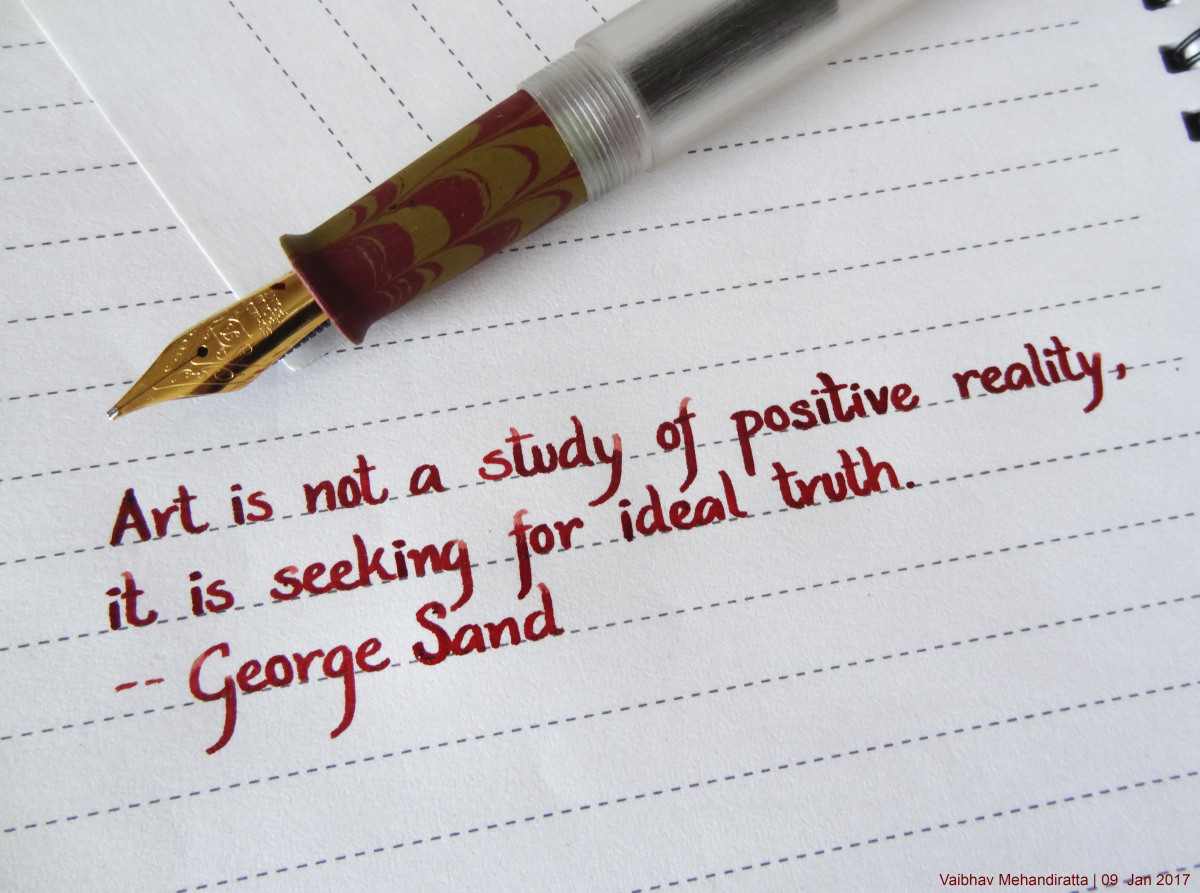 Art is not a study of positive reality,
it is seeking for ideal truth.
-- George Sand
Vaibhav Mehandiratta | 09 Jan 2017